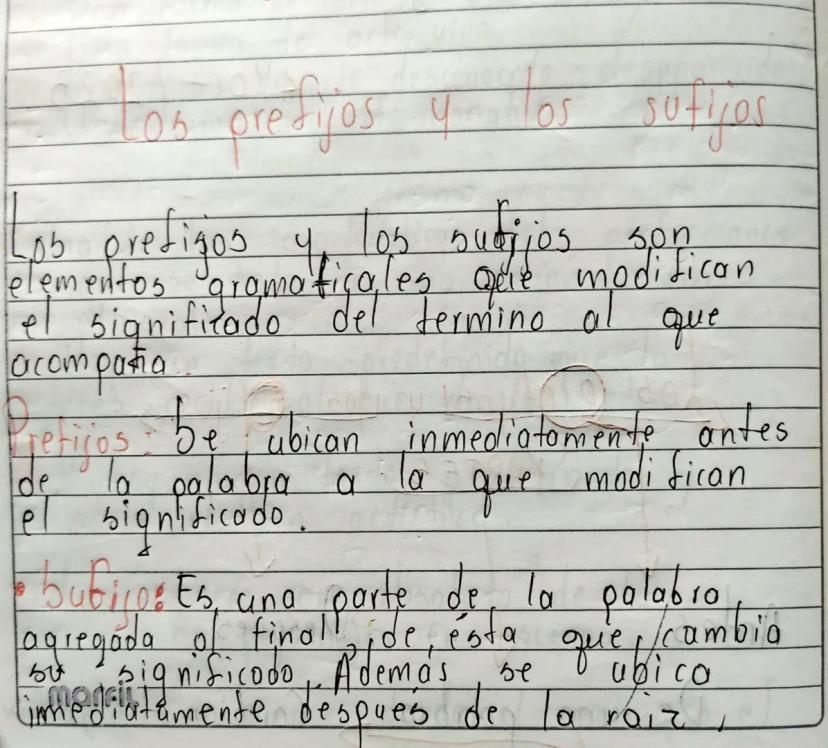 Los prefijos y los sufijos
Los prefijos y los sufijos son
elementos gramaticales que modifican
el significado del termino al que
acompaña.
Prefijos: Se ubican inmediatamente antes
de la palabra a la que modifican
el significado.
• Sufijo: Es una parte de la palabra
agregada al final de ésta que cambia
su significado. Además se ubica
inmediatamente después de la raiz,